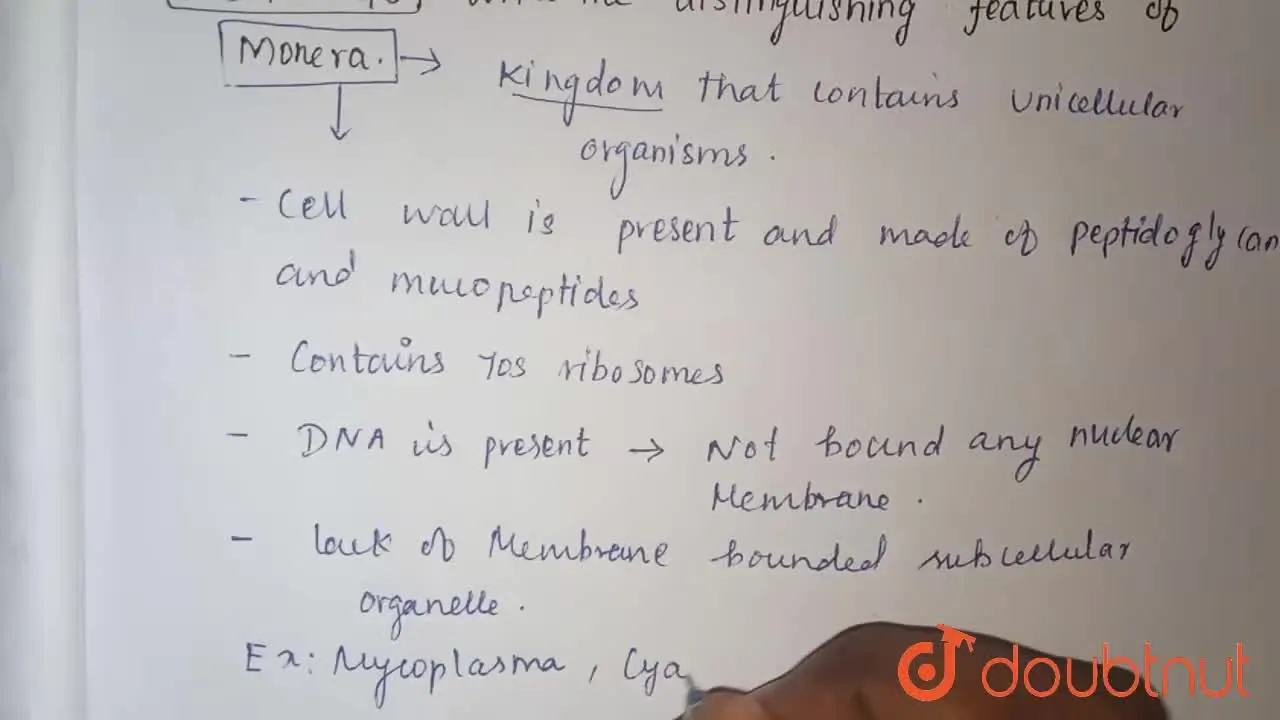 distinguishing features of
Monera. → Kingdom that contains unicellular
organisms.
- Cell wall is present and made of peptidoglycan
and mucopeptides
- Contains 70s ribosomes
- DNA is present → Not bound any nuclear
Membrane.
- lack of Membrane bounded subcellular
organelle.
Ex: Mycoplasma, Cya
doubtnut